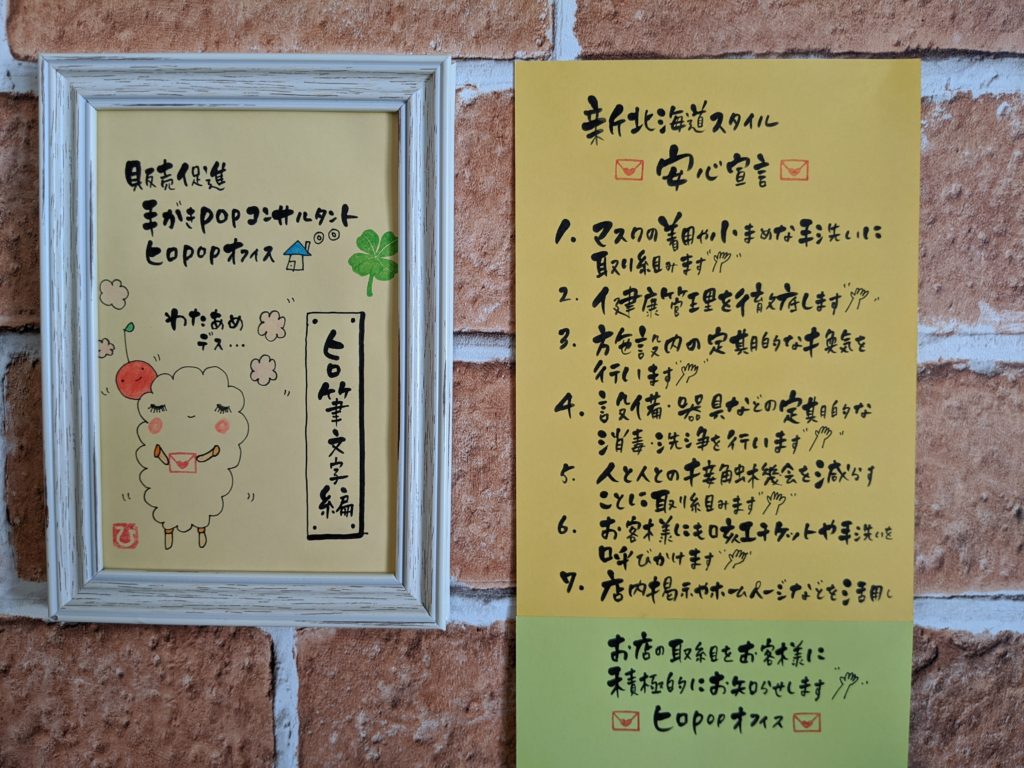 販売促進
手がきPOPコンサルタント
ヒロPOPオフィス
わたあめ
デス...
ヒロ筆文字編
ひろ
新北海道スタイル
安心宣言
1. マスクの着用や小まめな手洗いに
取り組みます
2. 健康管理を徹底します
3. 施設内の定期的な換気を
行います
4. 設備・器具などの定期的な
消毒・洗浄を行います
5. 人と人との接触機会を減らす
ことに取り組みます
6. お客様にも咳エチケットや手洗いを
呼びかけます
7. 店内掲示やホームページなどを活用し
お店の取組をお客様に
積極的にお知らせします
ヒロPOPオフィス